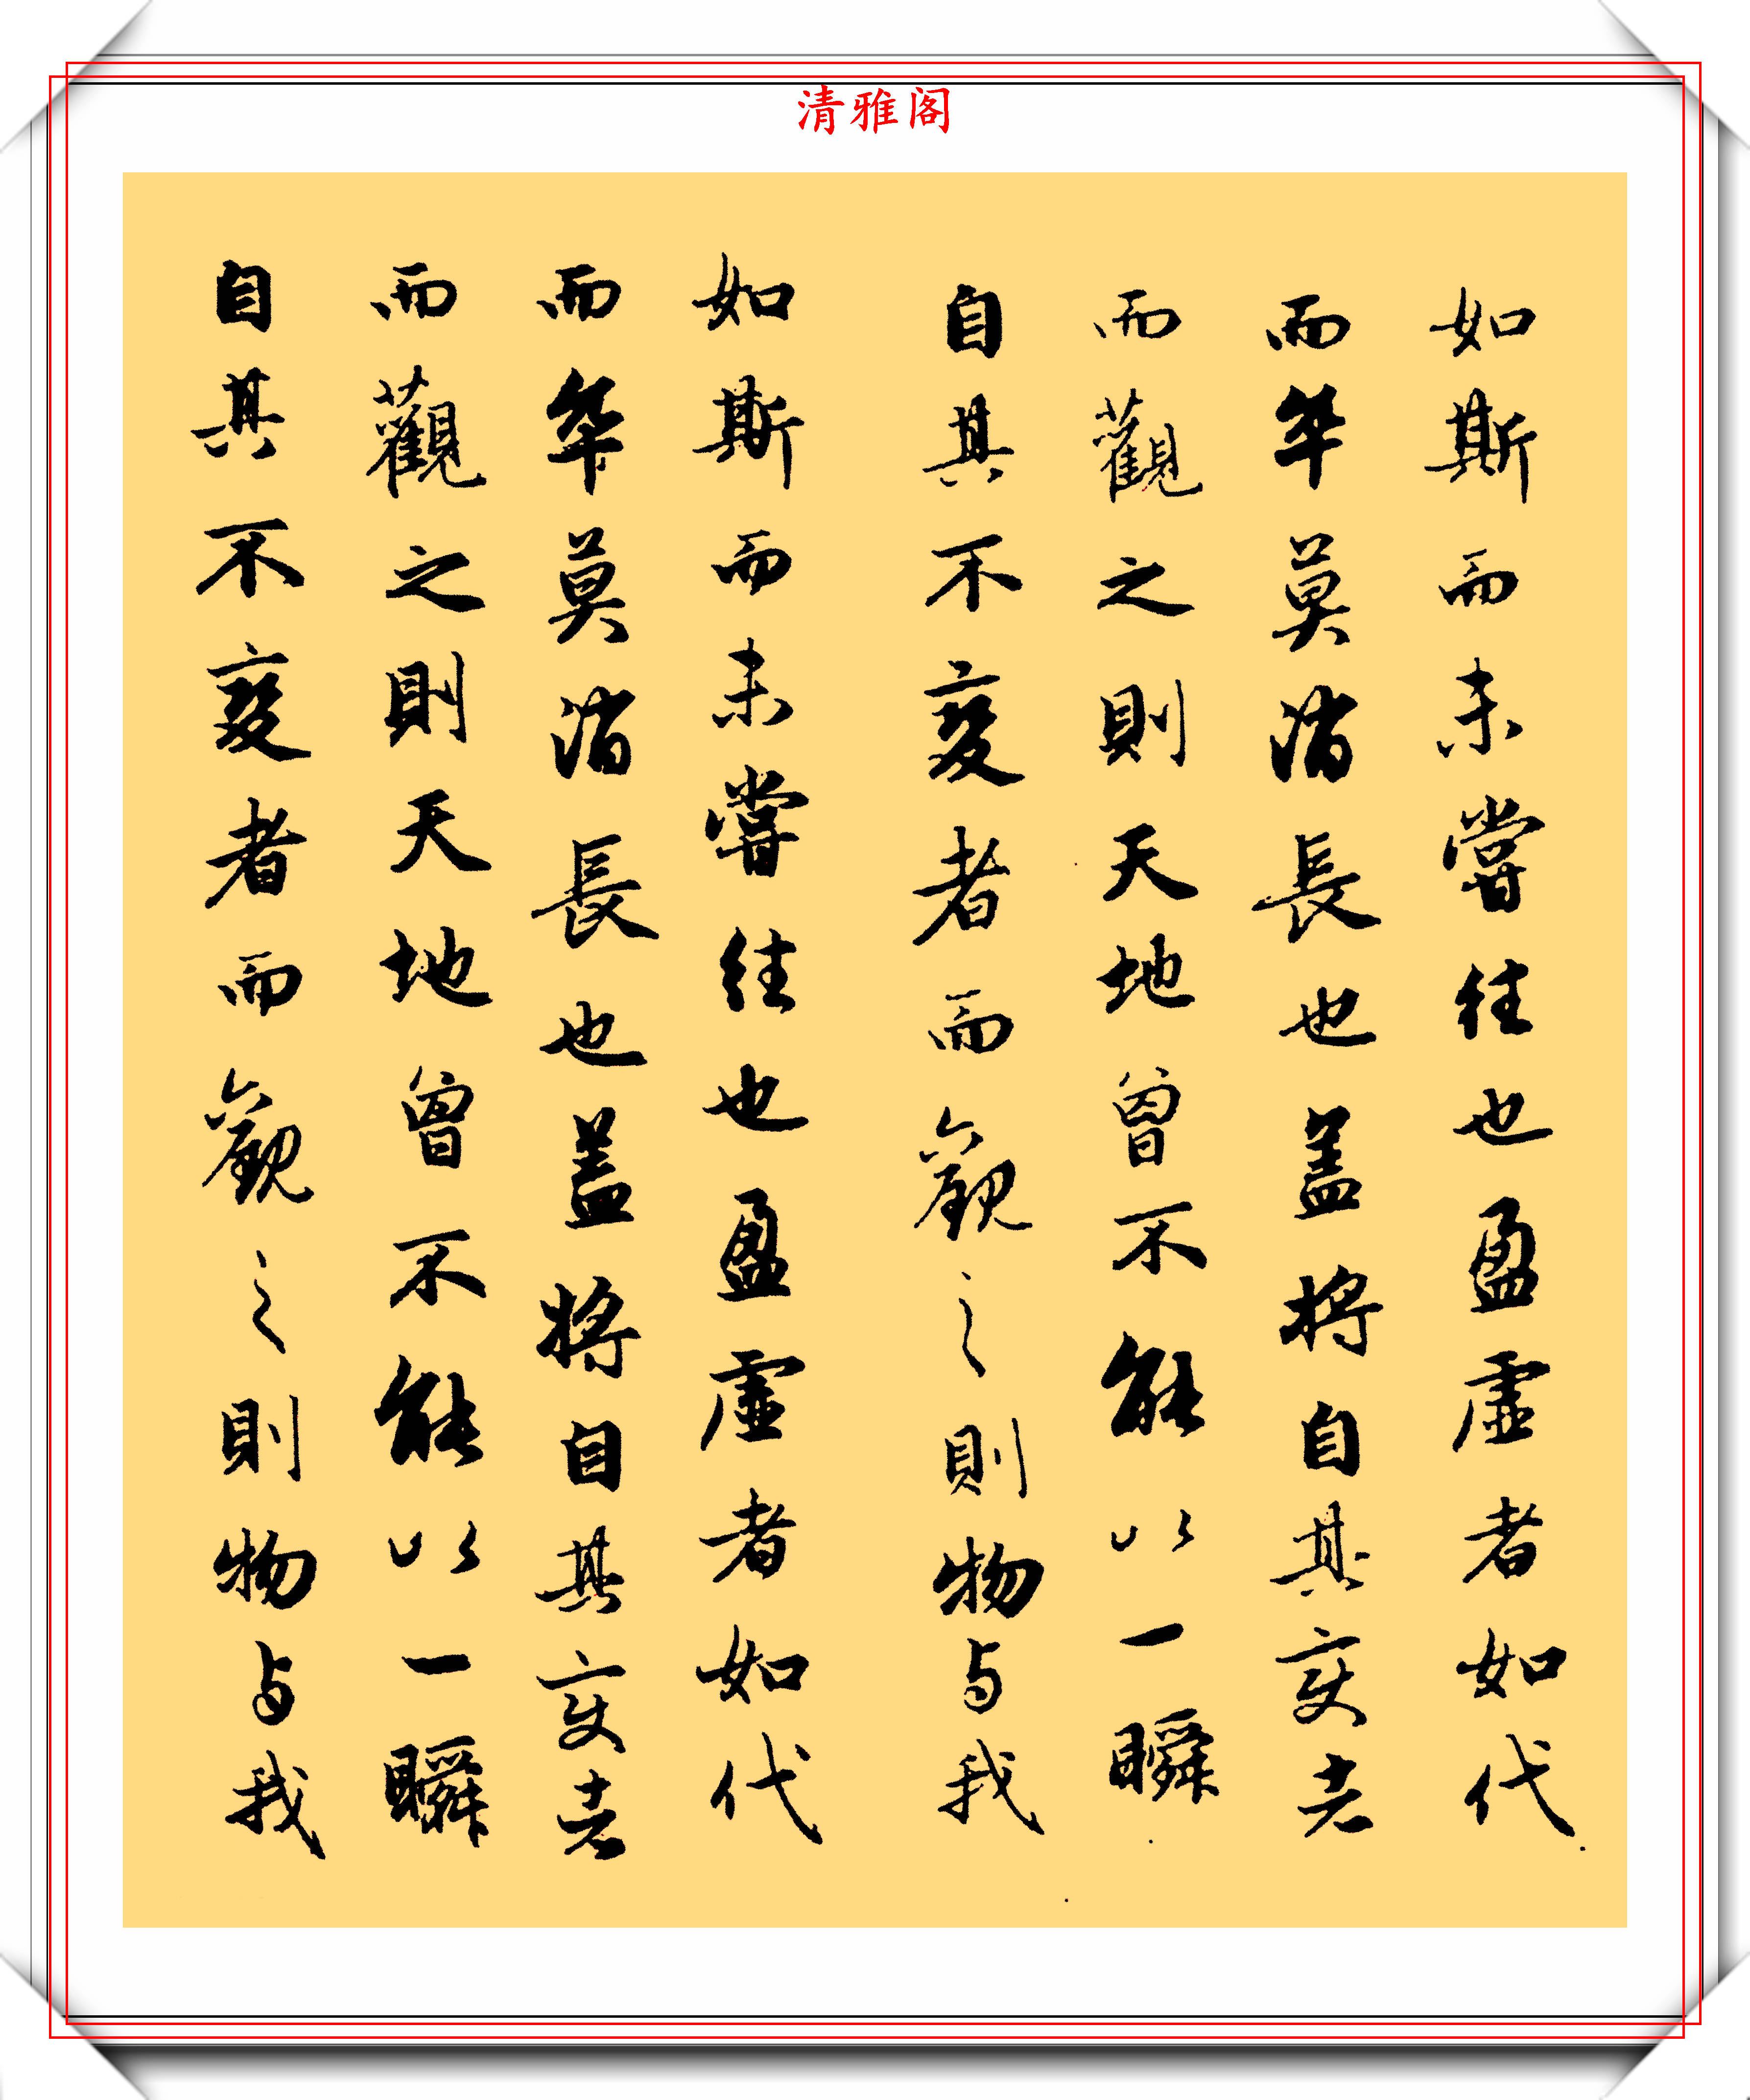 清雅阁
如斯而未嘗往也盈虛者如代
而卒莫消長也蓋將自其变者
而觀之則天地曾不能以一瞬
自其不变者而觀之則物与我
如斯而未嘗往也盈虛者如代
而卒莫消長也蓋將自其变者
而觀之則天地曾不能以一瞬
自其不变者而觀之則物与我